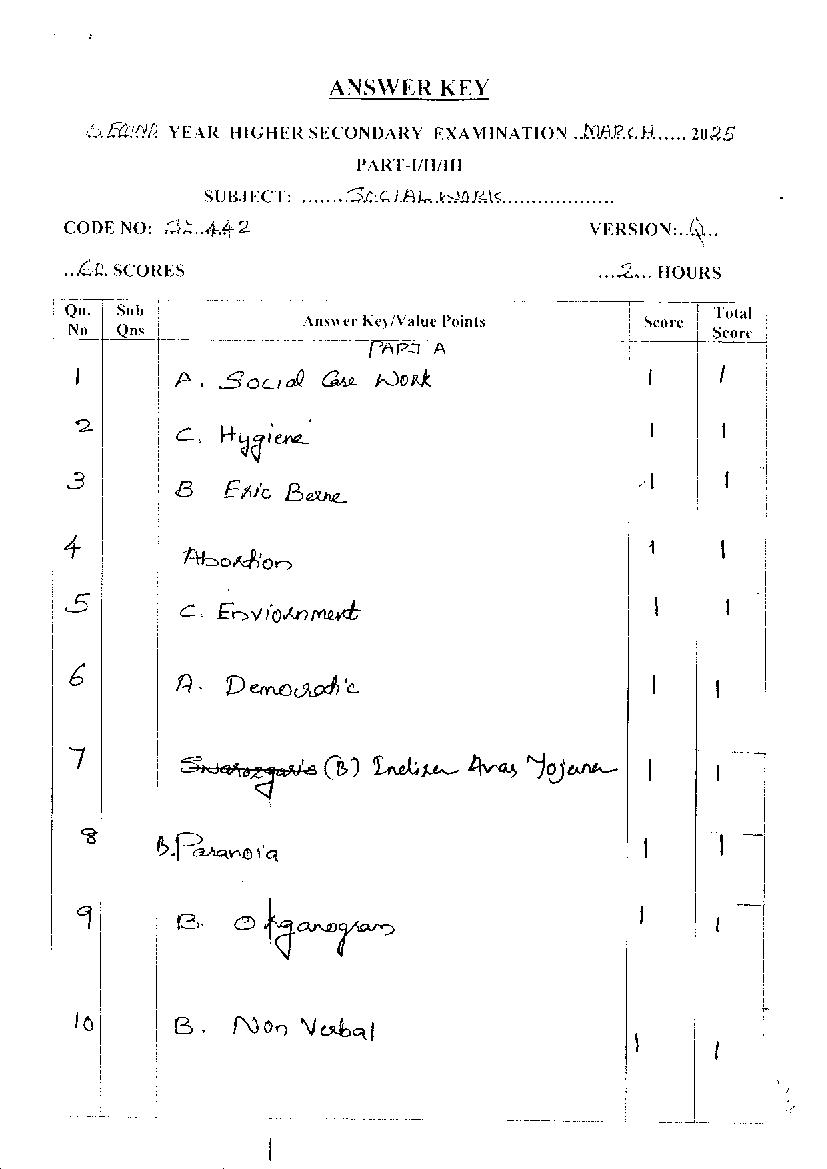 ANSWER KEY
SECOND YEAR HIGHER SECONDARY EXAMINATION ..MARCH..... 2025
PART-I/II/III
SUBJECT: .......SOCIAL WORK...................
CODE NO: 442 VERSION:
..60. SCORES ...2... HOURS
Qn. No Sub Qns Answer Key/Value Points Score Total Score
PART A
1 A. Social Case Work 1 1
2 C. Hygiene 1 1
3 B Eric Berne 1 1
4 Abortion 1 1
5 C. Enviornment 1 1
6 A. Democratic 1 1
7 Swarozgaris (B) Indira Avas Yojana 1 1
8 B. Paranoia 1 1
9 B. Organogram 1 1
10 B. Non Verbal 1 1
1